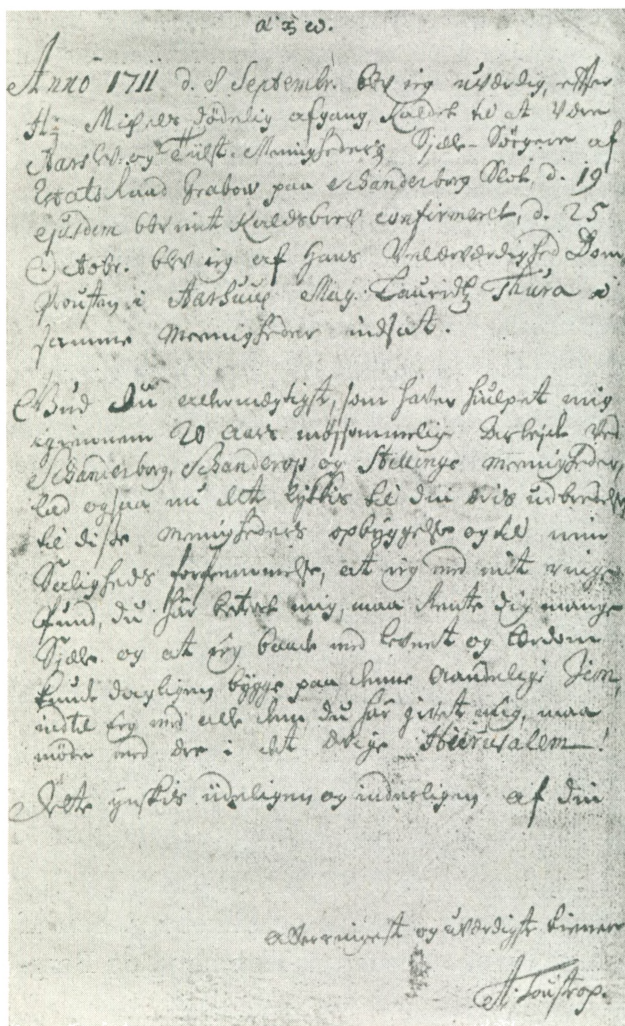 α & ω.
Anno 1711 d. 8 Septembr. blev ieg uværdig, efter
Hr. Michels dødelig afgang, Kaldet til at være
Aarslev og Tiilst Menigheders Siæle-Sørgere af
Etatsraad Grabow paa Schanderborg Slot, d. 19
ejusdem blev mit Kaldsbrev confirmeret, d. 25
Octobr. blev ieg af Hans Velærværdighed Dom
Prousten i Aarhuus Mag. Lauridtz Thura i
samme Menigheder indsat.
Gud du allermægtigst, som haver hulpet mig
igiennem 20 Aars møysommelige Arbeyde ved
Schanderborg, Schanderop og Stillinge Menigheder,
lad ogsaa nu dette lykkis til din æris udbredelse
til disse Menigheders opbyggelse og til min
Saligheds forfremmelse, at ieg med mit ringe
Pund, du har betroet mig, maa vente dig mange
Siæle og at ieg baade med levnet og lærdom
kunde dagligen bygge paa denne Aandelige Zion,
indtil ieg med alle dem du har givet mig, maa
møde med ære i det ævige Hierusalem!
Dette ynskis ideligen og inderligen af din
allerringest og uværdigste tienere
A. Toustrop.